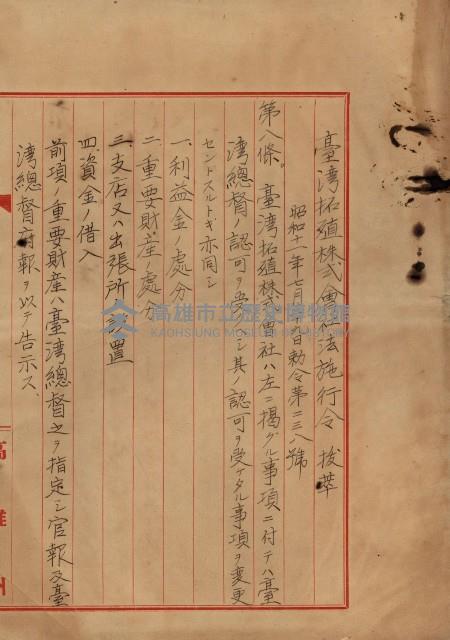 臺湾拓殖株式會社法施行令 抜萃
昭和十一年七月 日勅令第二三八號
第八條。臺湾拓殖株式會社ハ左ニ揭グル事項ニ付テハ臺
湾總督ノ認可ヲ受クベシ其ノ認可ヲ受ケタル事項ヲ変更
セントスルトキ亦同シ
一、利益金ノ處分
二、重要財産ノ處分
三、支店又ハ出張所ノ設置
四、資金ノ借入
前項ノ重要財産ハ臺湾總督之ヲ指定シ官報及臺
湾總督府報ヲ以テ告示ス、
高雄州
高雄市立歷史博物館
KAOHSIUNG MUSEUM